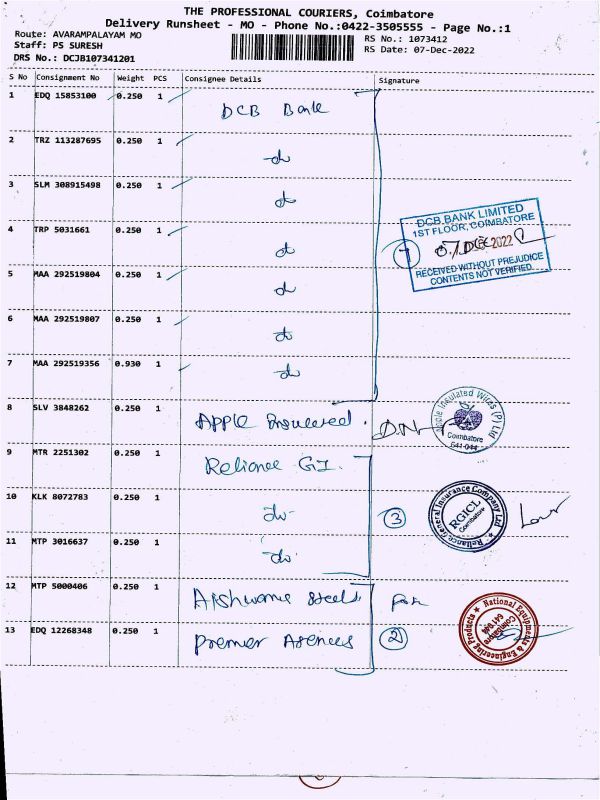 THE PROFESSIONAL COURIERS, Coimbatore
Delivery Runsheet - MO - Phone No.:0422-3505555 - Page No.:1
Route: AVARAMPALAYAM MO
RS No.: 1073412
Staff: P5 SURESH
RS Date: 07-Dec-2022
DRS No.: DCJB107341201
S No Consignment No Weight PCS Consignee Details Signature
1 EDQ 15853100 0.250 1 DCB Bank
2 TRZ 113287695 0.250 1 do
3 SLM 308915498 0.250 1 do
4 TRP 5031661 0.250 1 do
DCB BANK LIMITED
1ST FLOOR, COIMBATORE
07 DEC 2022
RECEIVED WITHOUT PREJUDICE
CONTENTS NOT VERIFIED
7
5 MAA 292519804 0.250 1 do
6 MAA 292519807 0.250 1 do
7 MAA 292519356 0.930 1 do
8 SLV 3848262 0.250 1 Apple
Apple Insulated Wires (P) Ltd
Coimbatore
641 044
9 MTR 2251302 0.250 1 Reliance GI
10 KLK 8072783 0.250 1 do
3
Reliance General Insurance Company Ltd
RGICL
Coimbatore
11 MTP 3016637 0.250 1 do
12 MTP 5000406 0.250 1 Aishwarya Steels
13 EDQ 12268348 0.250 1 Premier Agencies
2
National Equipments & Engineering Products
Coimbatore